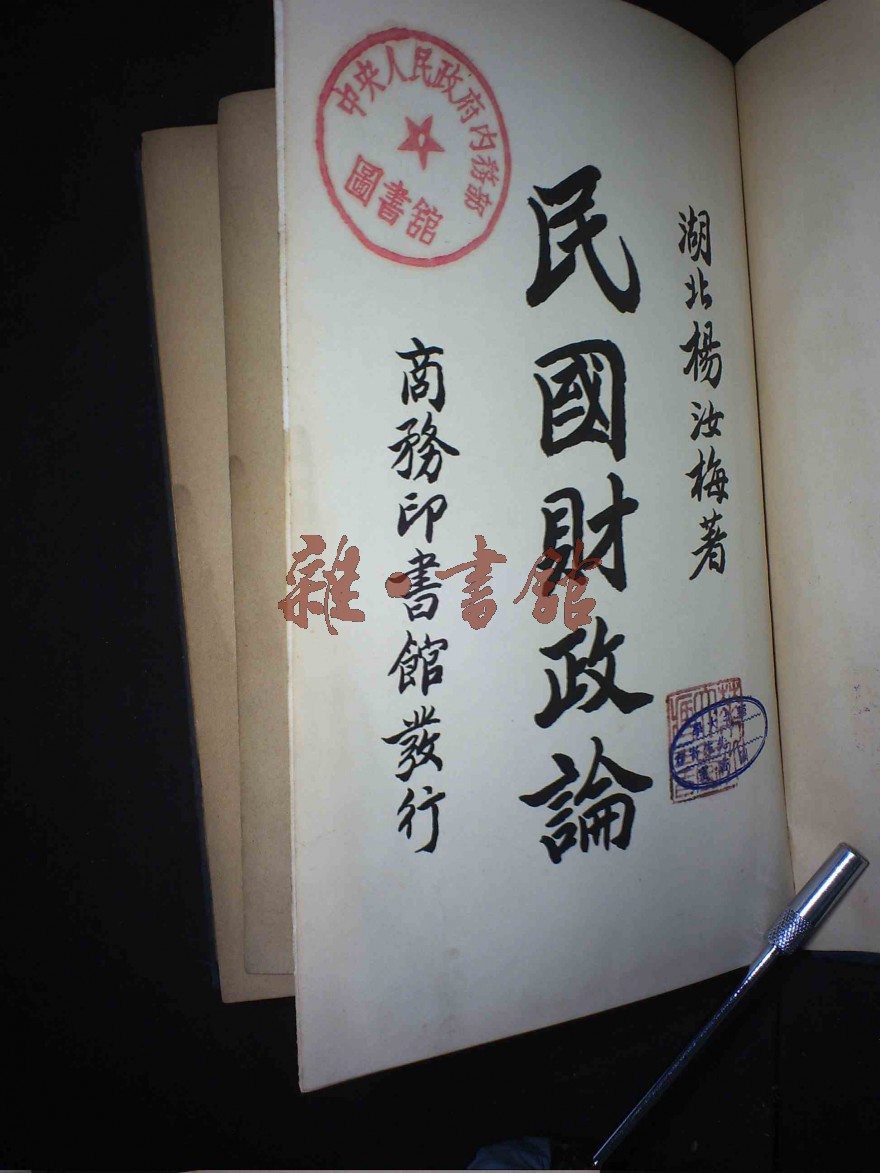 湖北楊汝梅著
民國財政論
商務印書館發行
中央人民政府内務部
圖書舘
雜·書舘